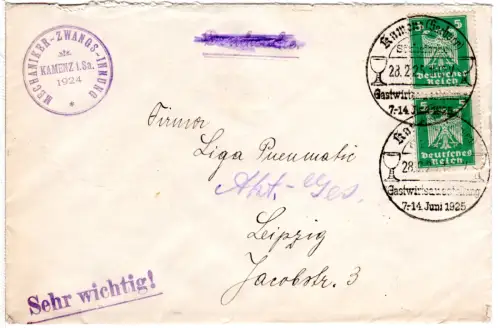 MECHANIKER-ZWANGS-INNUNG
KAMENZ i. Sa.
1924
5
Deutsches
Reich
Kamenz (Sachsen)
28.2.25
Gastwirtsausstellung
7.-14. Juni 1925
5
Deutsches
Reich
28.2.25
Gastwirtsausstellung
7.-14. Juni 1925
Firma
Liga Pneumatic
Akt.-Ges.
Leipzig
Jacobstr. 3
Sehr wichtig!